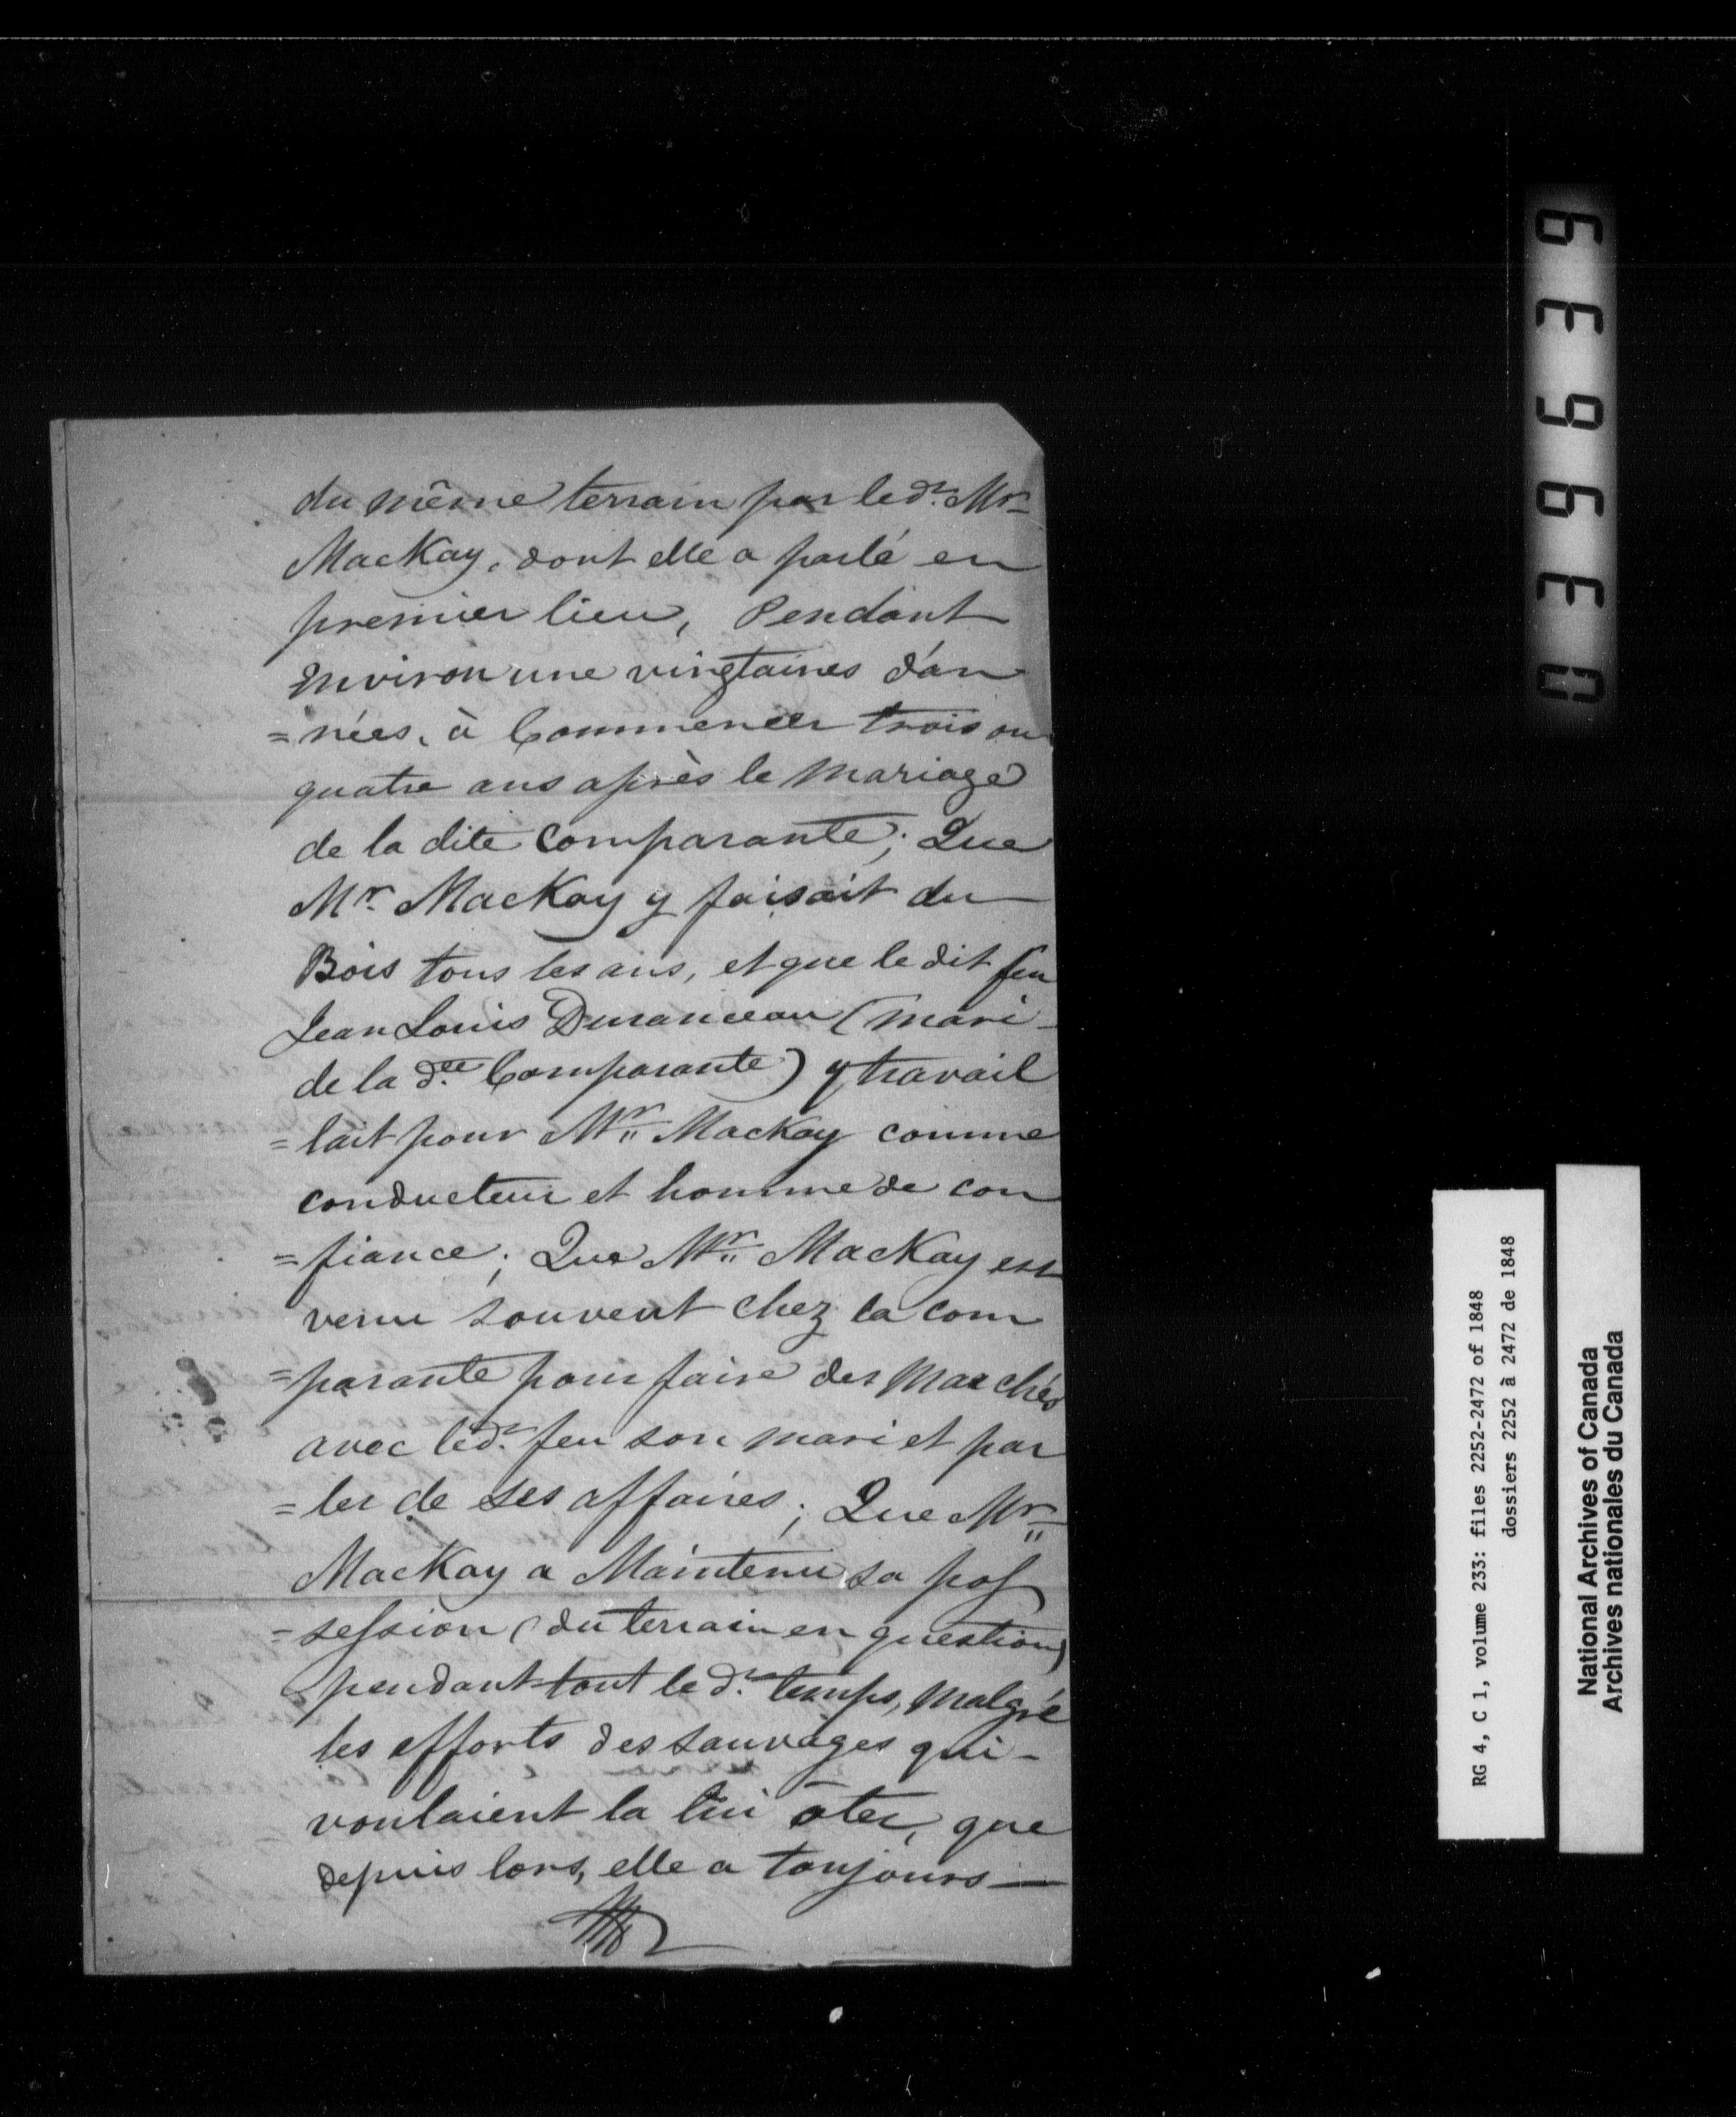 du même terrain par led.t Mr
MacKay, dont elle a parlé en
premier lieu, Pendant
Environ une vingtaines d'an
=nées, à Commencer trois ou
quatre ans après le Mariage
de la dite comparante; Que
Mr. MacKay y faisait du
Bois tous les ans, et que le dit feu
Jean Louis Duranceau (mari
de la d.te Comparante) y travail
=lait pour Mr. MacKay comme
conducteur et homme de con
=fiance; Que Mr. MacKay est
venu souvent chez la com
=parante pour faire des Marchés
avec led.t feu son mari et par
=ler de ses affaires; Que Mr.
MacKay a Maintenu sa pos
=session (du terrain en question)
pendant tout led.t temps, Malgré
les efforts des sauvages qui
voulaient la lui ôter, que
depuis lors, elle a toujours
039639
RG 4, C 1, volume 233: files 2252-2472 of 1848
dossiers 2252 à 2472 de 1848
National Archives of Canada
Archives nationales du Canada